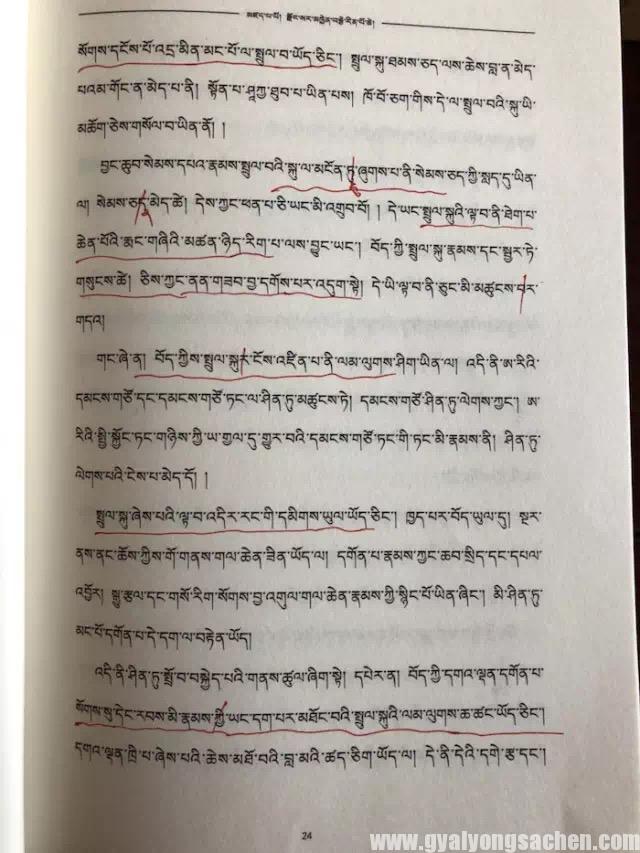 མཛད་པ་པོ། རྫོང་སར་མཁྱེན་བརྩེ་རིན་པོ་ཆེ།
སོགས་དངོས་པོ་འདྲ་མིན་མང་པོ་ལ་སྤྲུལ་བ་ཡོད་ཅིང་། སྤྲུལ་སྐུ་ཐམས་ཅད་ལས་ཆེས་བླ་ན་མེད་
པའམ་གོང་ན་མེད་པ་ནི། སྟོན་པ་ཤཱཀྱ་ཐུབ་པ་ཡིན་པས། ཁོ་བོ་ཅག་གིས་དེ་ལ་སྤྲུལ་བའི་སྐུ་ཡི་
མཆོག་ཅེས་གསོལ་བ་ཡིན་ནོ། །
བྱང་ཆུབ་སེམས་དཔའ་རྣམས་སྤྲུལ་བའི་སྐུ་ལ་མངོན་དུ་ཞུགས་པ་ནི་སེམས་ཅད་ཀྱི་སླད་དུ་ཡིན་
ལ། སེམས་ཅན་མེད་ཚེ། དེས་ཀྱང་ཕན་པ་ཅི་ཡང་མི་འགྲུབ་བོ། ། དེ་ཡང་སྤྲུལ་སྐུའི་ལྟ་བ་ནི་ཐེག་པ་
ཆེན་པོའི་རྨང་གཞིའི་མཚན་ཉིད་རིག་པ་ལས་བྱུང་ཡང་། བོད་ཀྱི་སྤྲུལ་སྐུ་རྣམས་དང་སྦྱར་ཏེ་
གསུངས་ཚེ། ཅིས་ཀྱང་ནན་གཟབ་བྱ་དགོས་པར་འདུག་སྟེ། དེ་ཡི་ལྟ་བ་ནི་ཅུང་མི་མཚུངས་པར་
གདའ།
གང་ཞེ་ན། བོད་ཀྱིས་སྤྲུལ་སྐུར་ངོས་འཛིན་པ་ནི་ལམ་ལུགས་ཤིག་ཡིན་ལ། འདི་ནི་ཨ་རིའི་
དམངས་གཙོ་དང་དམངས་གཙོ་ཏང་ལ་ཤིན་ཏུ་མཚུངས་ཏེ། དམངས་གཙོ་ཤིན་ཏུ་ལེགས་ཀྱང་། ཨ་
རིའི་སྤྱི་སྐྱོང་ཏང་གཉིས་ཀྱི་ཡ་གྱལ་དུ་གྱུར་བའི་དམངས་གཙོ་ཏང་གི་ཏང་མི་རྣམས་ནི། ཤིན་ཏུ་
ལེགས་པའི་ངེས་པ་མེད་དོ། །
སྤྲུལ་སྐུ་ཞེས་པའི་ལྟ་བ་འདིར་རང་གི་དམིགས་ཡུལ་ཡོད་ཅིང་། ཁྱད་པར་བོད་ཡུལ་དུ། སྔར་
ནས་ནང་ཆོས་ཀྱིས་གོ་གནས་གལ་ཆེན་ཟིན་ཡོད་ལ། དགོན་པ་རྣམས་ཀྱང་ཆབ་སྲིད་དང་དཔལ་
འབྱོར། སྒྱུ་རྩལ་དང་གསོ་རིག་སོགས་བྱ་འགུལ་གལ་ཆེན་རྣམས་ཀྱི་སྙིང་པོ་ཡིན་ཞིང་། མི་ཤིན་ཏུ་
མང་པོ་དགོན་པ་དེ་དག་ལ་བརྟེན་ཡོད།
འདི་ནི་ཤིན་ཏུ་སྤྲོ་བ་བསྐྱེད་པའི་གནས་ཚུལ་ཞིག་སྟེ། དཔེར་ན། བོད་ཀྱི་དགའ་ལྡན་དགོན་པ་
སོགས་སུ་དེང་རབས་མི་རྣམས་ཀྱི་ཡང་དག་པར་མཐོང་བའི་སྤྲུལ་སྐུའི་ལམ་ལུགས་ཆ་ཚང་ཡོད་ཅིང་།
དགའ་ལྡན་ཁྲི་པ་ཞེས་པའི་ཆེས་མཐོ་བའི་བླ་མའི་ཚད་ཅིག་ཡོད་ལ། དེ་ནི་དེའི་དགེ་རྩ་དང་།
24
www.gyalyongsachen.com